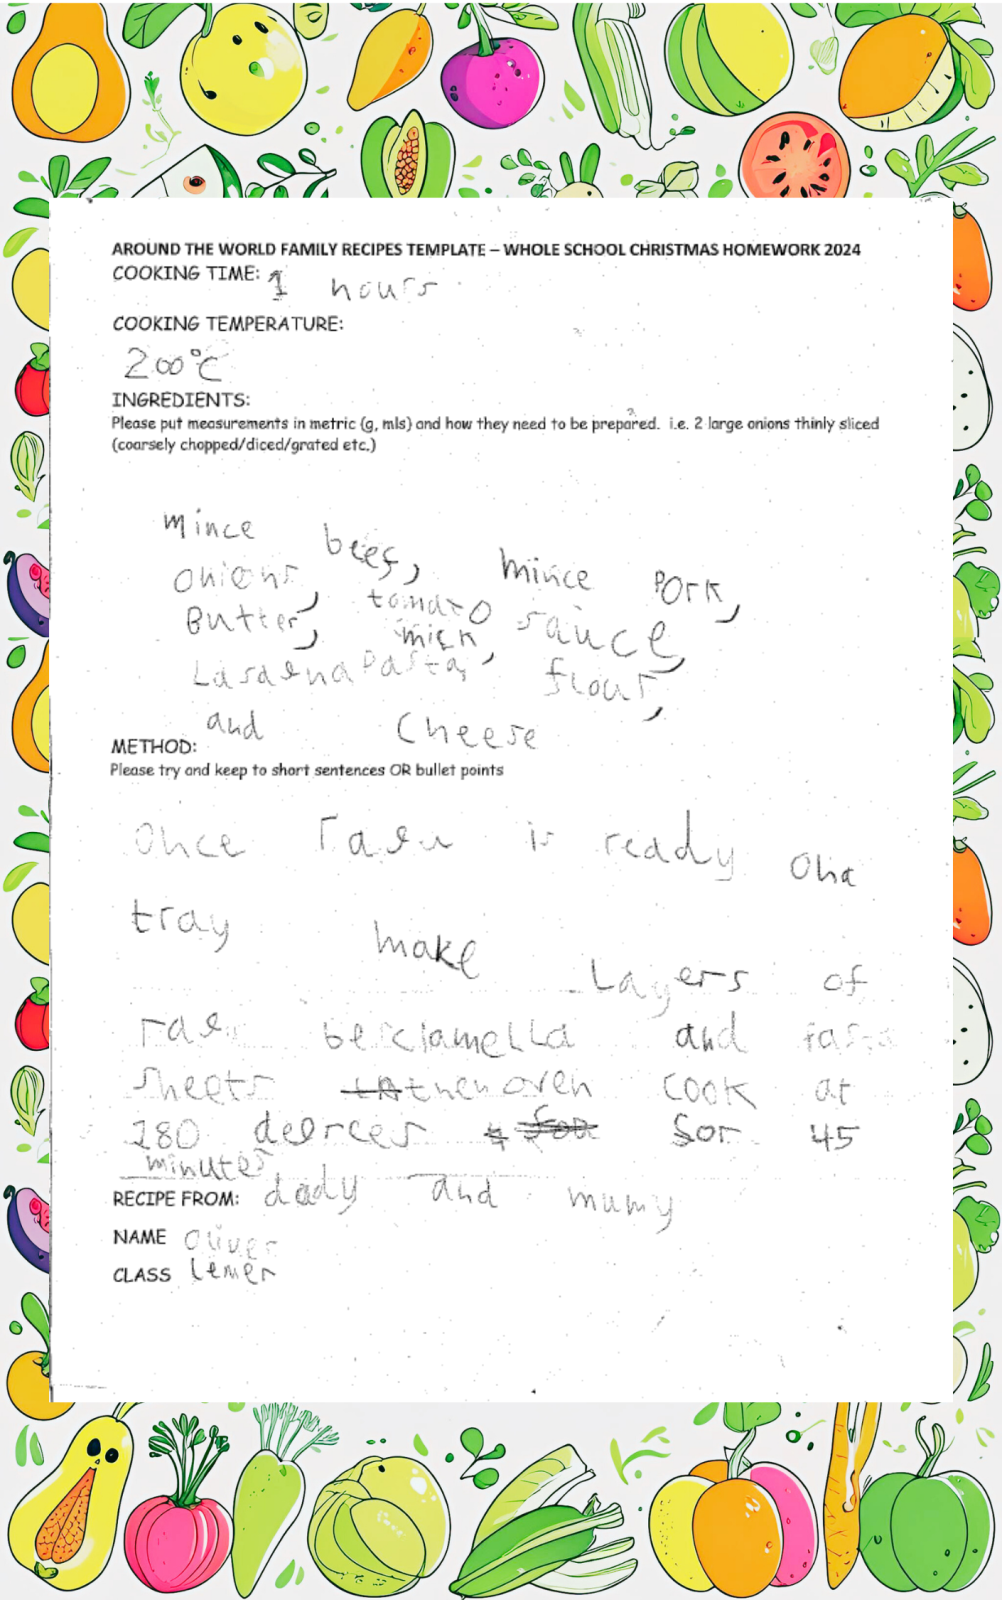 AROUND THE WORLD FAMILY RECIPES TEMPLATE – WHOLE SCHOOL CHRISTMAS HOMEWORK 2024
COOKING TIME: 1 hours
COOKING TEMPERATURE:
200°C
INGREDIENTS:
Please put measurements in metric (g, mls) and how they need to be prepared. i.e. 2 large onions thinly sliced
(coarsely chopped/diced/grated etc.)
mince beef, mince Pork,
onions, tomato sauce,
Butter, milk,
Pasta, flour,
and Cheese
METHOD:
Please try and keep to short sentences OR bullet points
Once is ready
tray make Layers of
and
sheets then oven cook at
degrees for 45
minutes
RECIPE FROM: dady and mumy
NAME Oliver
CLASS